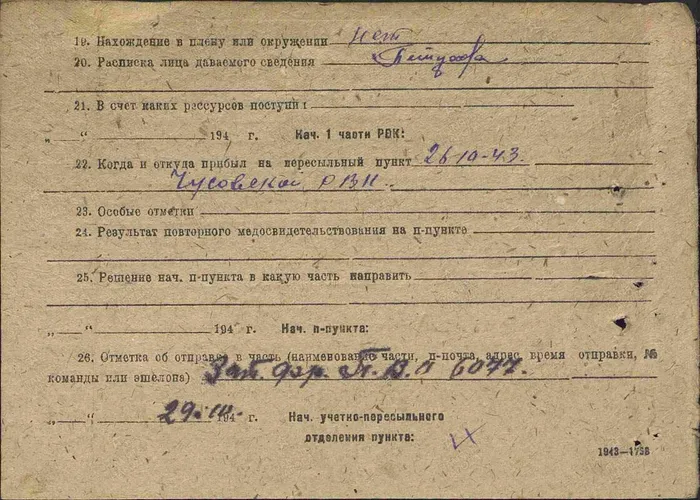 19. Нахождение в плену или окружении нет
20. Расписка лица даваемого сведения
21. В счет каких рессурсов поступил
„ “ 194 г. Нач. 1 части РВК:
22. Когда и откуда прибыл на пересыльный пункт 26-10-43.
Чусовской РВК.
23. Особые отметки
24. Результат повторного медосвидетельствования на п-пункте
25. Решение нач. п-пункта в какую часть направить
„ “ 194 г. Нач. п-пункта:
26. Отметка об отправке в часть (наименование части, п-почта, адрес, время отправки, №
команды или эшелона) Зап. 6077.
„ “ 29. 194 г. Нач. учетно-пересыльного
отделения пункта:
1943—1758